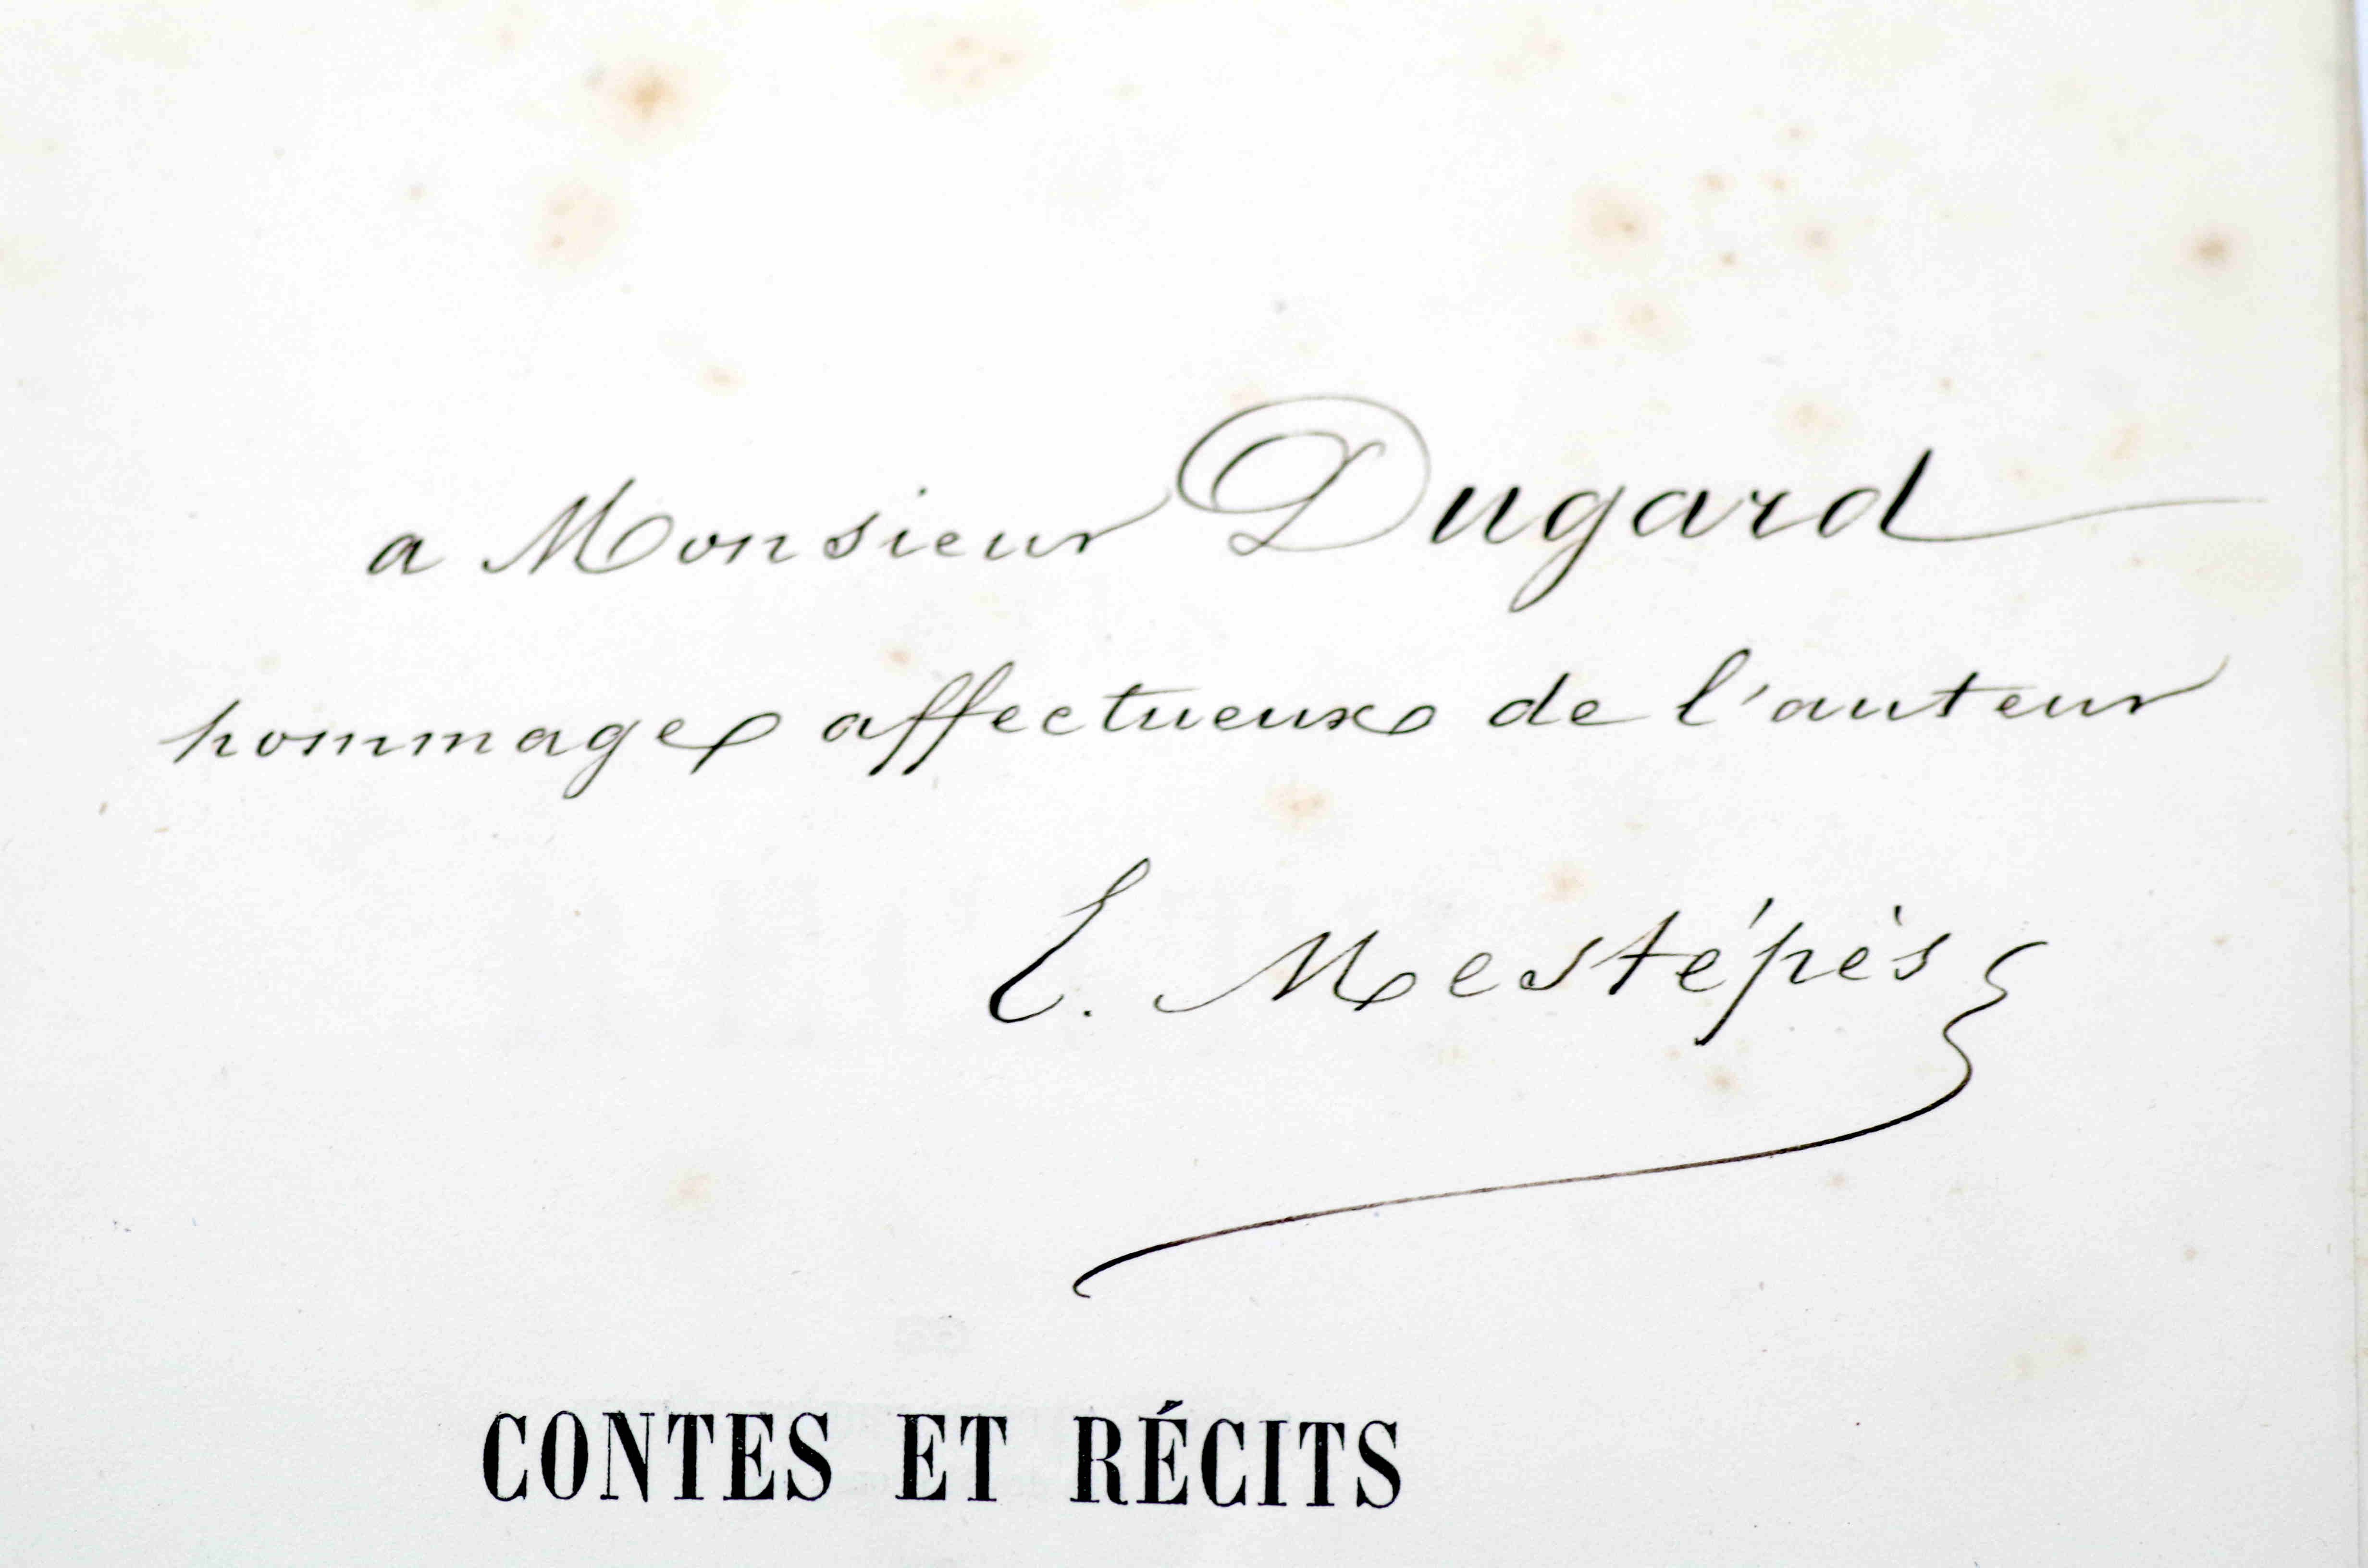 a Monsieur Dugard
hommage affectueux de l'auteur
E. Mestépès
CONTES ET RÉCITS